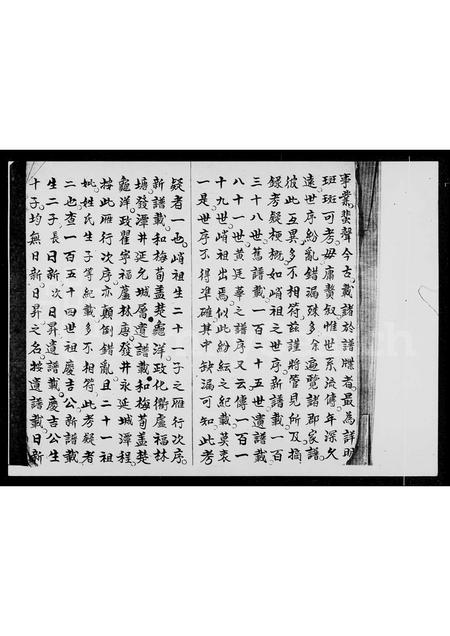 事業蜚聲今古載諸於譜牒者最為詳明
班班可考毋庸贅叙惟世系流傳年深久
遠世序紛亂錯漏殊多余遍覽諸郡家譜
彼此互異多不相符茲謹將管見所及摘
錄考疑梗概如峭祖之世序新譜載一百
三十八世舊譜載一百二十五世遺譜載
八十一世黃廷華之譜序又云傳一百一
十九世峭祖出焉似此紛紜之紀載莫衷
一是世序不得準確其中缺漏可知此考
疑者一也峭祖生二十一子之雁行次序
新譜載和梅荀盖楚龐洋政化衢盧福林
塘發潭井延允城層遺譜載和梅荀盖楚
龐洋政瞿寧福蘆林唐發井永延城潭程
按此雁行次序亦顛倒錯亂且二十一祖
妣姓氏生子等紀載多不相符此考疑者
二也查一百五十四世祖慶吉公新譜載
生二子長日新次日昇遺譜載慶吉公生
十子均無日新日昇之名按遺譜載日新